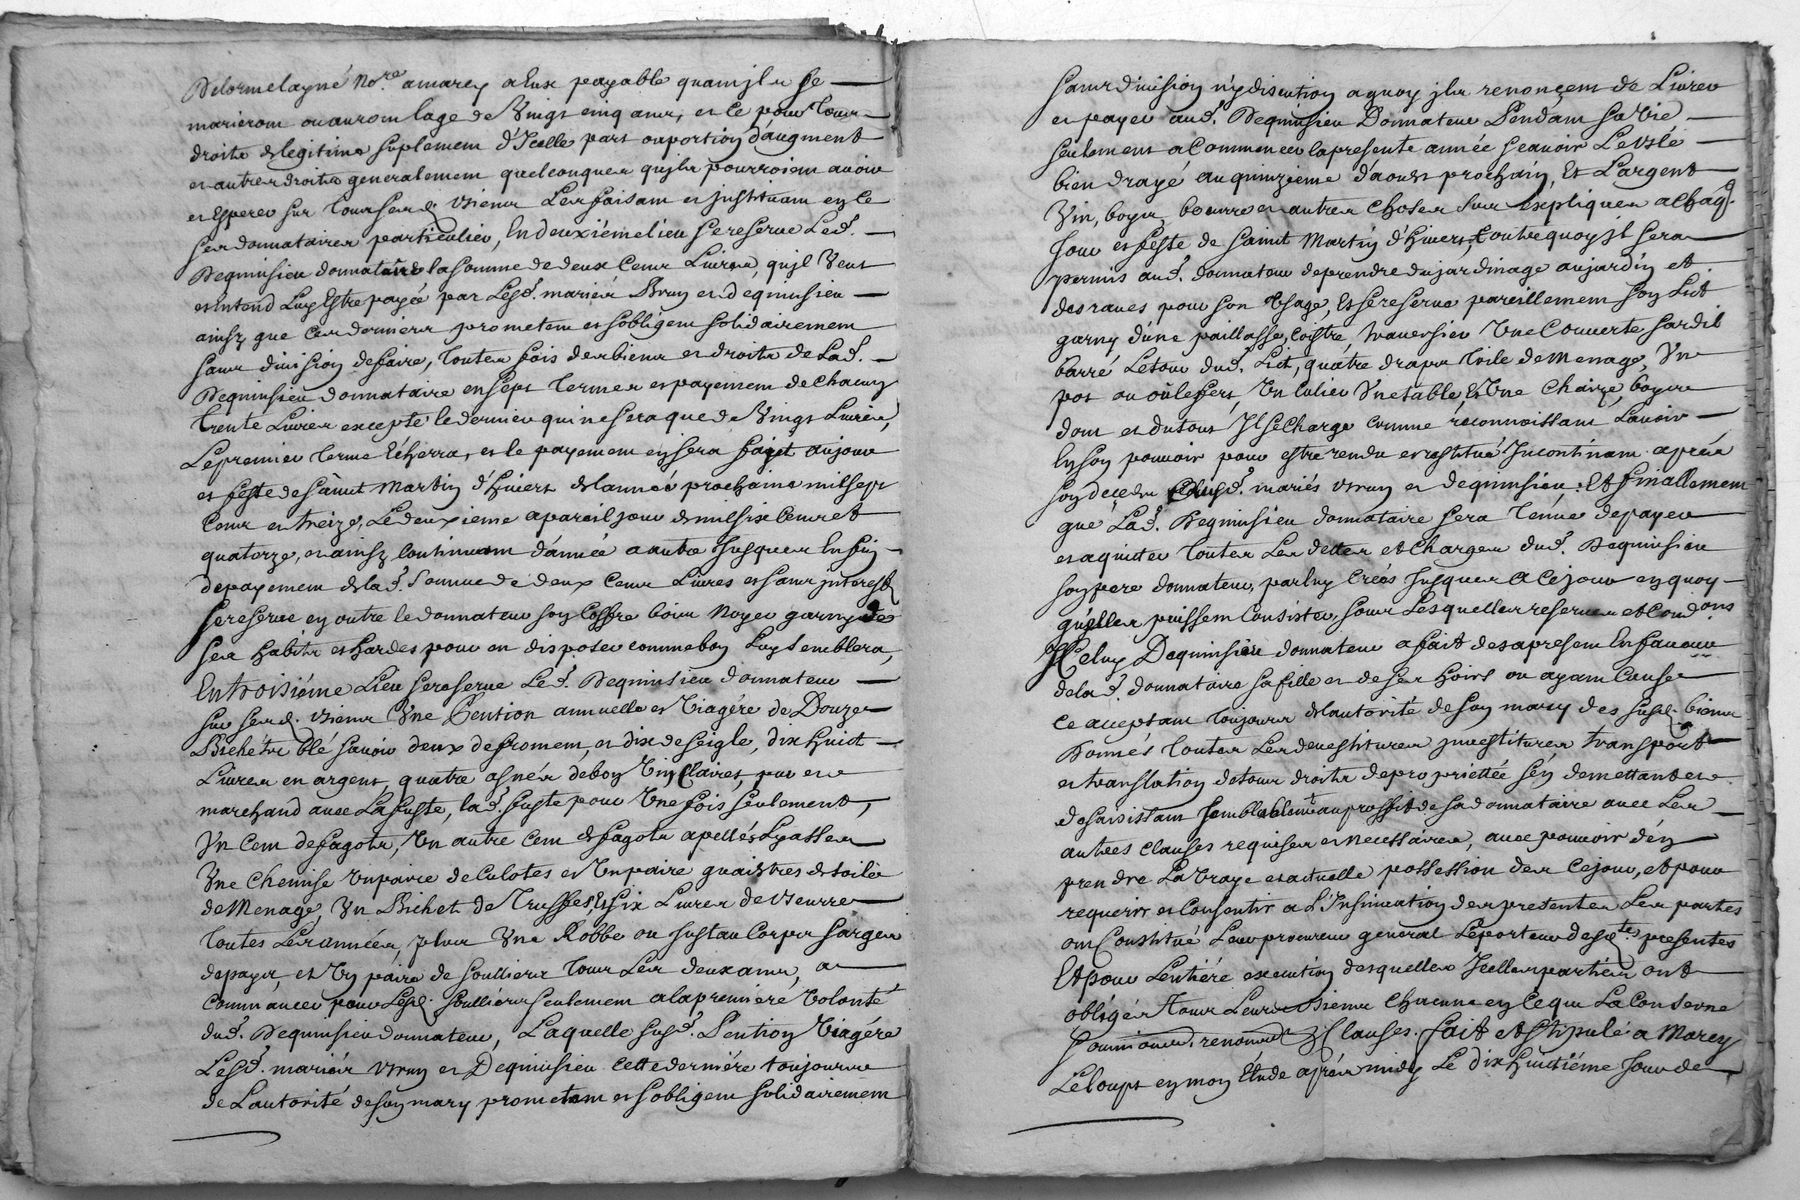 Delormelayné No.re a marcy a Eux payable quand jls se
marieront ou auront lage de Vingt cinq ans, et ce pour tous
droits de legitime suplement d'Icelle part ou portion d'augment
et autres droits generalement quelconques qu'jls pourroient avoir
et esperer sur tous ses d. biens Les faisant et justituant en ce
ses donnataires particuliers, En deuxiéme lieu se reserve Led.
Dequinsieu donnataire la somme de deux Cent Livres, qu'jl Veut
et entend Luy Estre payée par Lesd. mariés Brun et dequinsieu
ainsy que Ces derniers prometent et s'obligent solidairement
sans division de faire, toutes fois des biens et droits de Lad.
Dequinsieu donnataire en sept termes et payement de Chacun
trente Livres excepté le dernier qui ne sera que de Vingt Livres,
Le premier terme Echerra, et le payement en sera fait au jour
et feste de saint Martin d'hivert de l'année prochaine mil sept
Cent et treize, Le deuxieme a pareil jour de mil six Cent et
quatorze, et ainsy Continuant d'année a autre Jusques En fin
de payement de lad. Somme de deux Cent Livres et sans jnterest
se reserve en outre le donnateur son Coffre bois Noyer garny de
ses habits et hardes pour en disposer comme bon Luy semblera,
En troisiéme Lieu se reserve Led. Dequinsieu donnateur
sur sesd. biens Une Pention annuelle et Viagére de Douze
Bichets blé savoir deux de froment, et dix de seigle, dix huict
Livres en argent, quatre asnées de bon Vin Clairet, pur et
marchand avec La fuste, lad. fuste pour Une fois seulement,
Un Cent de fagots, Un autre Cent de fagots apellés Lyasses
Une Chemise Un paire de Culotes et Un paire guaistres de toile
de Menage, Un Bichet de Truffes Et six Livres de beurre
toutes Les années, plus Une Robbe ou Justau Corps sarge
de pays, et Un paire de soulliers tous Les deux ans, a
Commancer pour Lesd. soulliers seulement a la premiere Volonté
dud. Dequinsieu donnateur, Laquelle susd. Pention Viagére
Lesd. mariés brun et Dequinsieu cette derniére toujours
de L'autorité de son mary prometent et s'obligent solidairement
sans division ny discution a quoy jls renonçent de Livrer
et payer aud. Dequinsieu Donnateur Pendant sa Vie
seulement a Commencer la presente année scavoir Le blé
bien drayé au quinzieme d'aoust prochain, Et L'argent
Vin, boys, beurre et autres Choses sus expliquées a Chaq.
jour et feste de saint Martin d'hivert, outre quoy jl sera
permis aud. donnateur de prendre du jardinage au jardin et
des raves pour son Usage, Et se reserve pareillement son Lit
garny d'une paillasse, Coistre, traversier Une Couverte sardil
barré Le tour dud. Lict, quatre draps toile de Menage, Un
pot ou oule fert, Un Culier Une table, Et Une Chaize boys
dont et du tout Il se Charge comme reconnoissant L'avoir
En son pouvoir pour estre rendu et restitué Incontinant aprés
son decedz auxsd. mariés brun et dequinsieu: Et finallement
que Lad. Dequinsieu donnataire sera tenüe de payer
et aquitter toutes Les dettes et Charges dud. Dequinsieu
son pere donnateur, par luy Créés Jusques a Ce jour en quoy
qu'elles puissent Consister, sous Lesquelles reserves et Condons
Iceluy Dequinsieu donnateur a fait des a present En faveur
de lad. donnataire sa fille et de ses hoirs ou ayant Cause
Ce acceptant toujours de l'autorité de son mary des susd. biens
Donnés toutes Les devestitures jnvestitures transport
et translation de tous droits de proprietée s'en demettant et
desaisissant semblablement au proffit de sa donnataire avec Les
autres clauses requises et necessaires, avec pouvoir d'en
prendre La Vraye et actuelle possession des Ce jour, et pour
requerir et Consentir a L'Insinuation des presentes Les parties
ont Constitué Leur procureur general Le porteur desd. presentes
Et pour L'entiére execution desquelles Icelles parties ont
obligés tous Leurs biens Chacune en Ce qui La Conserne
soumi[...] renon[...] & Clauses. fait et stipulé a Marcy
Le loup et en mon Etude aprés midy Le dix huictiéme Jour de